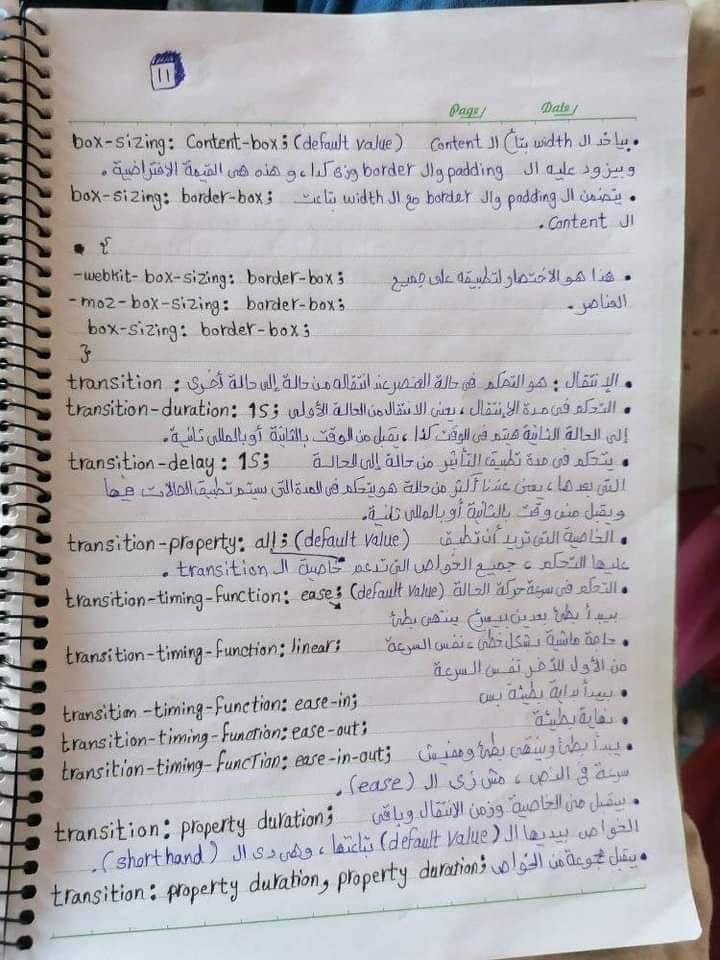 11
Page/ Date/
box-sizing: Content-box; (default value) • بياخد ال width بتاع ال Content
وبيزود عليه ال padding وال border وزي كدا، وهذه هي القيمة الافتراضية.
box-sizing: border-box; • يتضمن ال padding وال border مع ال width بتاعت
ال Content.
• {
-webkit-box-sizing: border-box; • هذا هو الاختصار لتطبيقه على جميع
-moz-box-sizing: border-box; العناصر.
box-sizing: border-box;
}
transition : • الإنتقال : هو التحكم في حالة العنصر عند انتقاله من حالة إلى حالة أخرى
transition-duration: 1S; • التحكم في مدة الانتقال، يعني الانتقال من الحالة الأولى
إلى الحالة الثانية هيتم في الوقت كذا، يقبل من الوقت بالثانية أو بالمللي ثانية.
transition-delay: 1S; • يتحكم في مدة تطبيق التأثير من حالة إلى الحالة
التي بعدها، يعني عندنا أكثر من حالة هو يتحكم في المدة التي سيتم تطبيق الحالات فيها
ويقبل وقت بالثانية أو بالمللي ثانية.
transition-property: all; (default value) • الخاصية التي تريد أن تطبق
عليها التحكم، جميع الخواص التي تدعم خاصية ال transition.
transition-timing-function: ease; (default value) • التحكم في سرعة حركة الحالة
بيبدأ بطئ بعدين ينتهي بطئ
transition-timing-function: linear; • حاجة ماشية بشكل خطي، نفس السرعة
من الأول للآخر نفس السرعة
transition-timing-function: ease-in; • بيبدأ بداية بطيئة بس
transition-timing-function: ease-out; • نهاية بطيئة
transition-timing-function: ease-in-out; • يبدأ بطئ وينتهي بطئ ومفيش
سرعة في النص، مش زي ال (ease).
transition: property duration; • بيقبل من الخاصية وزمن الانتقال وباقي
الخواص بيديها ال (default value) بتاعتها، وهي دي ال (shorthand).
transition: property duration, property duration; • يقبل مجموعة من الخواص